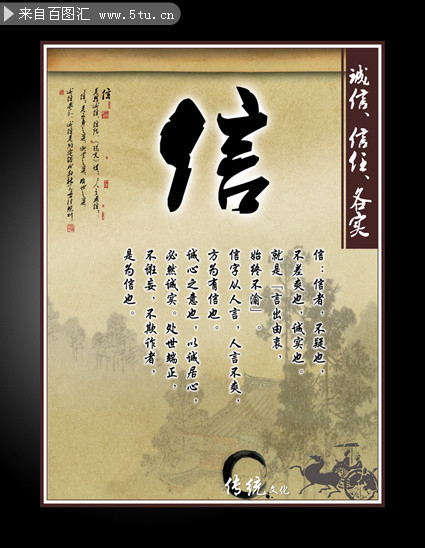 来自百图汇 www.5tu.cn
诚信、信任、各实
信
信
信：信者，不疑也，
不差爽也，诚实也。
就是『言出由衷，
始终不渝』。
信字从人言，人言不爽，
方为有信也。
诚心之意也，以诚居心，
必然诚实。处世端正，
不诳妄，不欺诈者，
是为信也。
传统文化